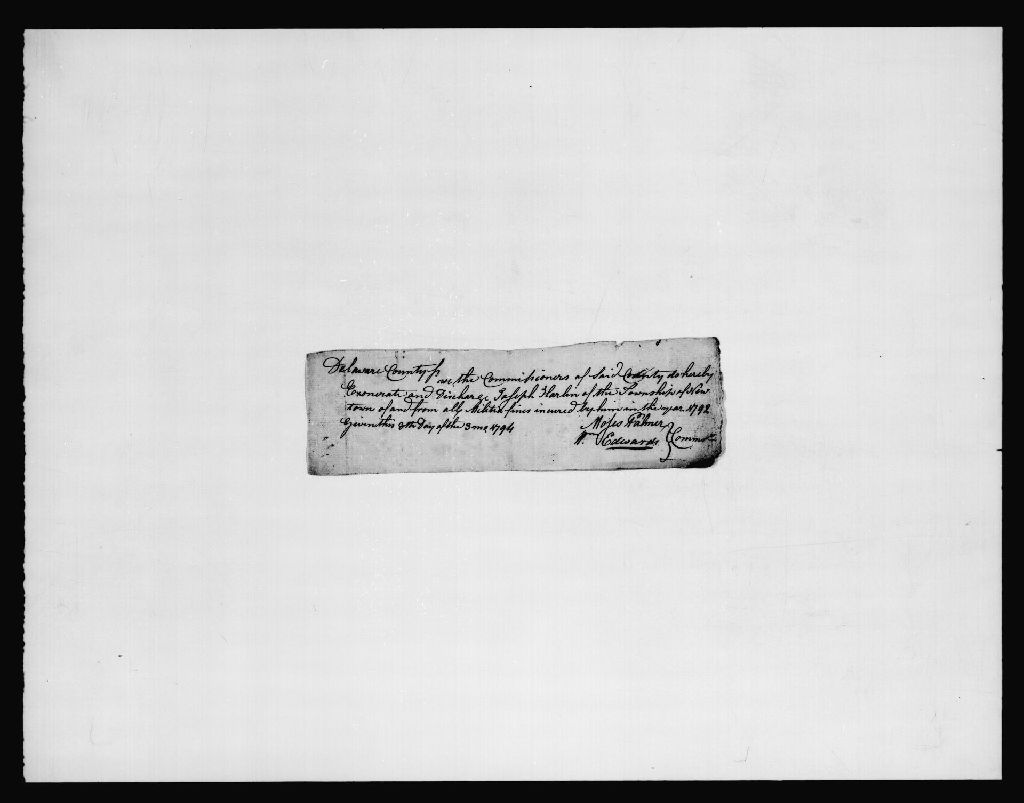 Delaware County ss
we the Commissioners of Said County do hereby
Exonerate and Discharge Joseph Harlin of the Township of New
town of and from all Militia fines incured by him in the year 1792
Given this 8th Day of the 3 mo 1794
Moses Palmer
Wm Edwards } Commrs